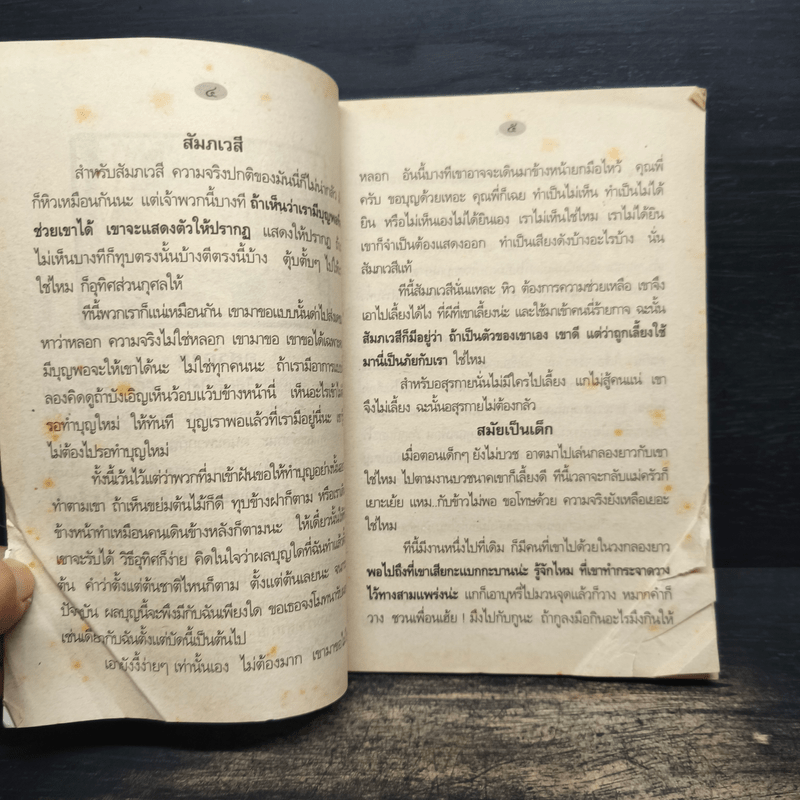 ๔
สัมภเวสี
สำหรับสัมภเวสี ความจริงปกติของมันนี่ก็ไม่น่า
ก็หิวเหมือนกันนะ แต่เจ้าพวกนี้บางที ถ้าเห็นว่าเรามีบุญพอ
ช่วยเขาได้ เขาจะแสดงตัวให้ปรากฏ แสดงให้ปรากฏ
ไม่เห็นบางทีก็ทุบตรงนั้นบ้างตีตรงนี้บ้าง ตุ้บตั้บๆ ไป
ใช่ไหม ก็อุทิศส่วนกุศลให้
ทีนี้พวกเราก็แน่เหมือนกัน เขามาขอแบบนั้นด่าไปส่ง
หาว่าหลอก ความจริงไม่ใช่หลอก เขามาขอ เขาขอได้เฉพาะ
มีบุญพอจะให้เขาได้นะ ไม่ใช่ทุกคนนะ ถ้าเรามีอาการแบบ
ลองคิดดูถ้าบังเอิญเห็นว้อบแว้บข้างหน้านี่ เห็นอะไรเข้า
รอทำบุญใหม่ ให้ทันที บุญเราพอแล้วที่เรามีอยู่นี่นะ
ไม่ต้องไปรอทำบุญใหม่
ทั้งนี้เว้นไว้แต่ว่าพวกที่มาเข้าฝันขอให้ทำบุญอย่างนั้น
ทำตามเขา ถ้าเห็นขย่มต้นไม้ก็ดี ทุบข้างฝาก็ตาม หรือ
ข้างหน้าทำเหมือนคนเดินข้างหลังก็ตามนะ ให้เดี๋ยวนั้น
เขาจะรับได้ วิธีอุทิศก็ง่าย คิดในใจว่าผลบุญใดที่ฉันทำแล้ว
ต้น คำว่าตั้งแต่ต้นชาติไหนก็ตาม ตั้งแต่ต้นเลยนะ
ปัจจุบัน ผลบุญนี้จะพึงมีกับฉันเพียงใด ขอเธอจงโมทนา
เช่นเดียวกับฉันตั้งแต่บัดนี้เป็นต้นไป
เอายังงี้ง่ายๆ เท่านั้นเอง ไม่ต้องมาก เขามาขอ
๕
หลอก อันนี้บางทีเขาอาจจะเดินมาข้างหน้ายกมือไหว้ คุณพี่
ครับ ขอบุญด้วยเหอะ คุณพี่ก็เฉย ทำเป็นไม่เห็น ทำเป็นไม่ได้
ยิน หรือไม่เห็นเองไม่ได้ยินเอง เราไม่เห็นใช่ไหม เราไม่ได้ยิน
เขาก็จำเป็นต้องแสดงออก ทำเป็นเสียงดังบ้างอะไรบ้าง นั่น
สัมภเวสีแท้
ทีนี้สัมภเวสีนั่นแหละ หิว ต้องการความช่วยเหลือ เขาจึง
เอาไปเลี้ยงได้ไง ที่ผีที่เขาเลี้ยงน่ะ และใช้มาเข้าคนนี่ร้ายกาจ ฉะนั้น
สัมภเวสีก็มีอยู่ว่า ถ้าเป็นตัวของเขาเอง เขาดี แต่ว่าถูกเลี้ยงใช้
มานี่เป็นภัยกับเรา ใช่ไหม
สำหรับอสุรกายนั่นไม่มีใครไปเลี้ยง แกไม่สู้คนแน่ เขา
จึงไม่เลี้ยง ฉะนั้นอสุรกายไม่ต้องกลัว
สมัยเป็นเด็ก
เมื่อตอนเด็กๆ ยังไม่บวช อาตมาไปเล่นกลองยาวกับเขา
ใช่ไหม ไปตามงานบวชนาคเขาก็เลี้ยงดี ทีนี้เวลาจะกลับแม่ครัวก็
เยาะเย้ย แหม..กับข้าวไม่พอ ขอโทษด้วย ความจริงยังเหลือเยอะ
ใช่ไหม
ทีนี้มีงานหนึ่งไปที่เดิม ก็มีคนที่เขาไปด้วยในวงกลองยาว
พอไปถึงที่เขาเสียกะแบกกะบานน่ะ รู้จักไหม ที่เขาทำกระจาดวาง
ไว้ทางสามแพร่งน่ะ แกก็เอาบุหรี่ไปมวนจุดแล้วก็วาง หมากคำก็
วาง ชวนเพื่อนเฮ้ย ! มึงไปกับกูนะ ถ้ากูลงมือกินอะไรมึงกินให้